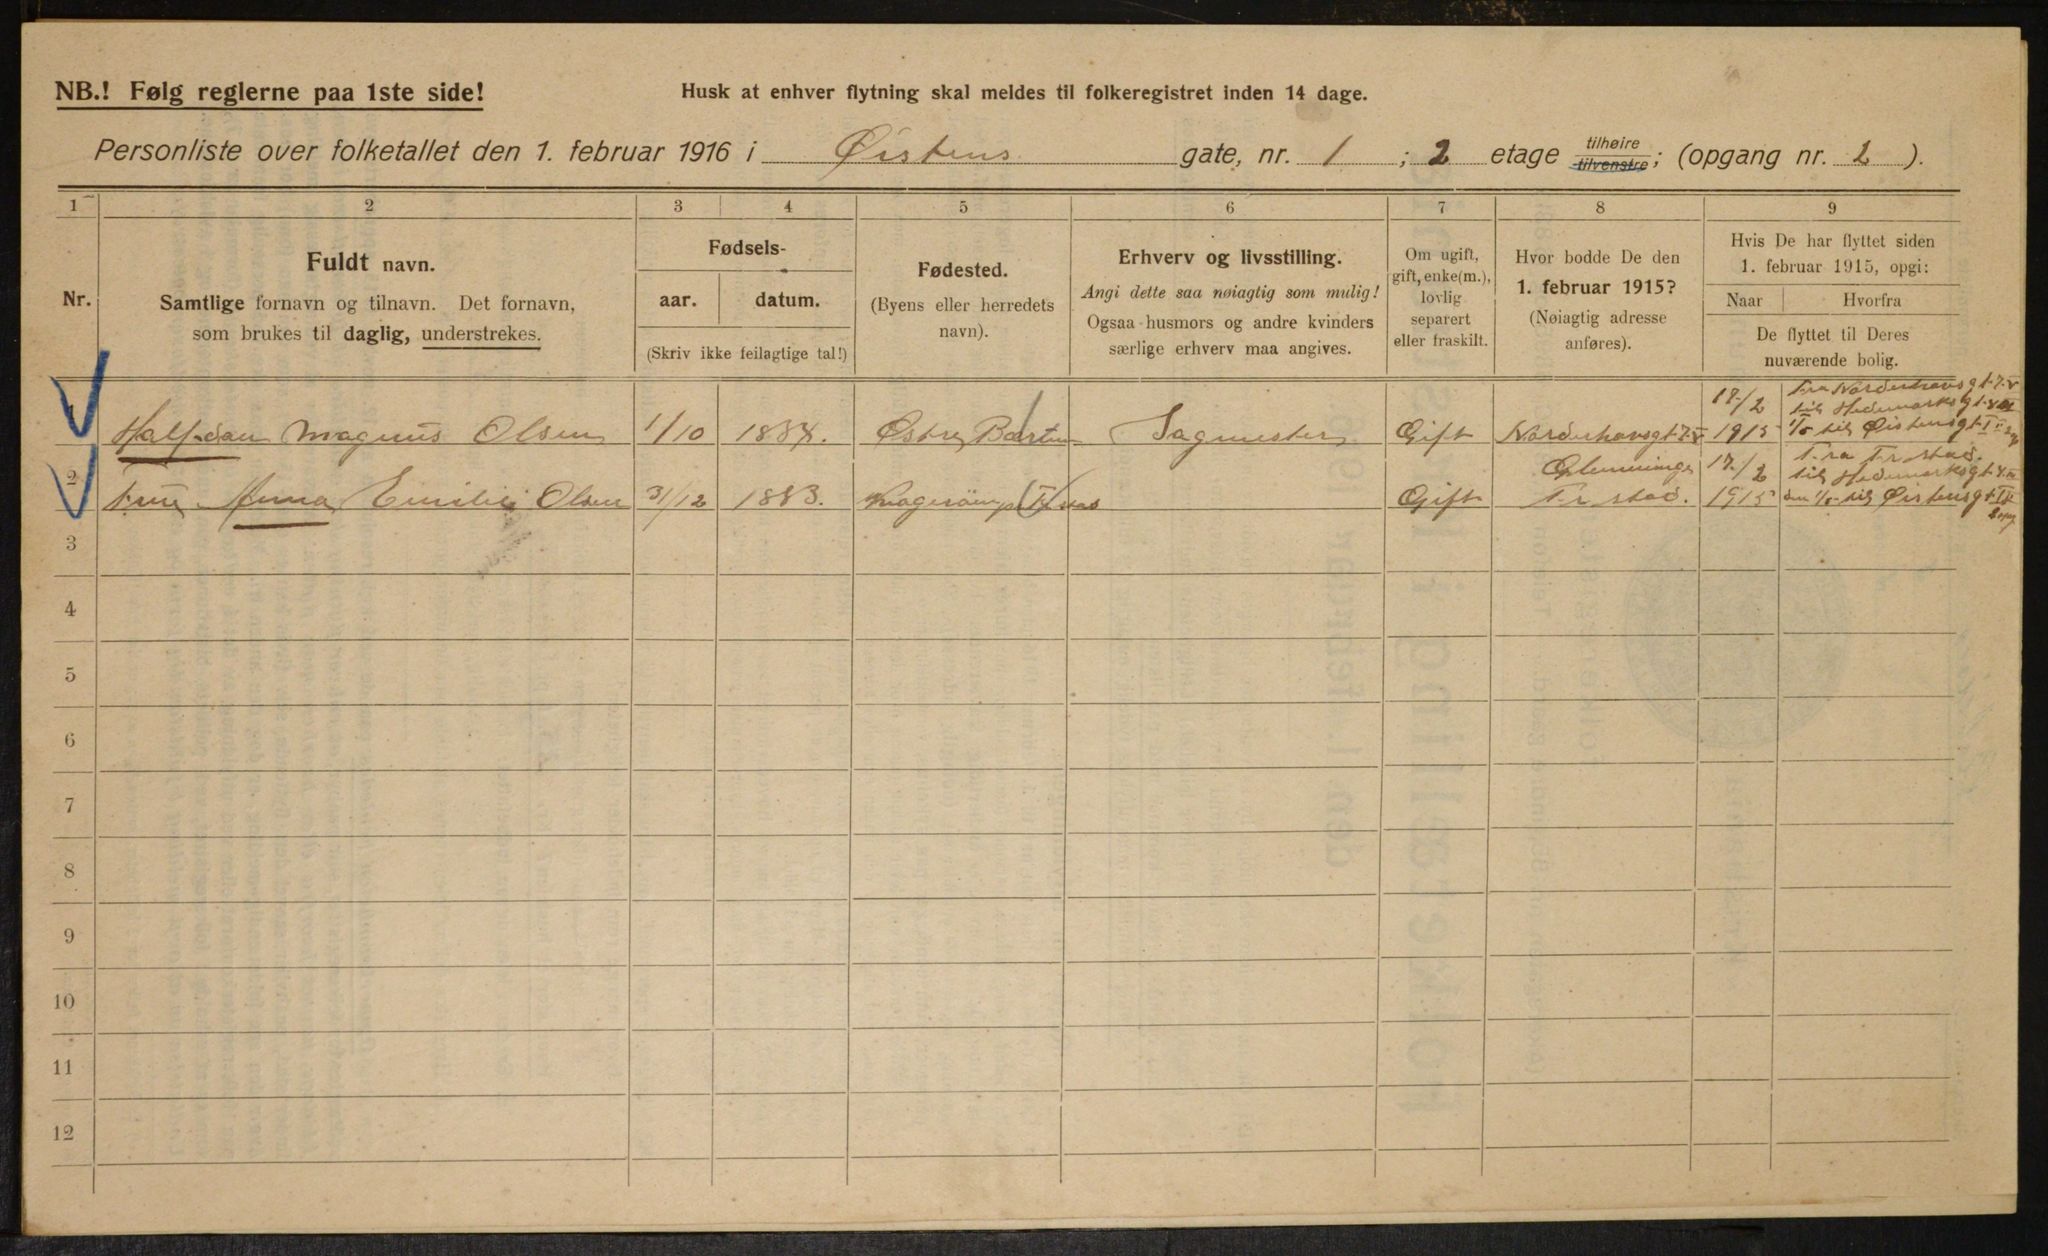 NB.! Følg reglerne paa 1ste side!
Husk at enhver flytning skal meldes til folkeregistret inden 14 dage.
Personliste over folketallet den 1. februar 1916 i Øistens gate, nr. 1 ; 2 etage tilhøire tilvenstre; (opgang nr. 2 ).
1 2 3 4 5 6 7 8 9
Nr.
Fuldt navn.
Samtlige fornavn og tilnavn. Det fornavn,
som brukes til daglig, understrekes.
Fødsels-
aar. datum.
(Skriv ikke feilagtige tal!)
Fødested.
(Byens eller herredets
navn).
Erhverv og livsstilling.
Angi dette saa nøiagtig som mulig!
Ogsaa husmors og andre kvinders
særlige erhverv maa angives.
Om ugift,
gift, enke(m.),
lovlig
separert
eller fraskilt.
Hvor bodde De den
1. februar 1915?
(Nøiagtig adresse
anføres).
Hvis De har flyttet siden
1. februar 1915, opgi:
Naar Hvorfra
De flyttet til Deres
nuværende bolig.
1 Halfdan Magnus Olsen 1/10 1884. Østre Sagmester Gift Norderhovsgt. 7. V 17/2 1915 Fra Norderhovsgt. 7. V
til Hedemarksgt.
til Øistensgt.
2 Fru Anna Emilie Olsen 31/12 1883. Gift Glemminge Fr stad. 17/2 1915 Fra Fr stad.
til Hedemarksgt.
den til Øistensgt.
3
4
5
6
7
8
9
10
11
12